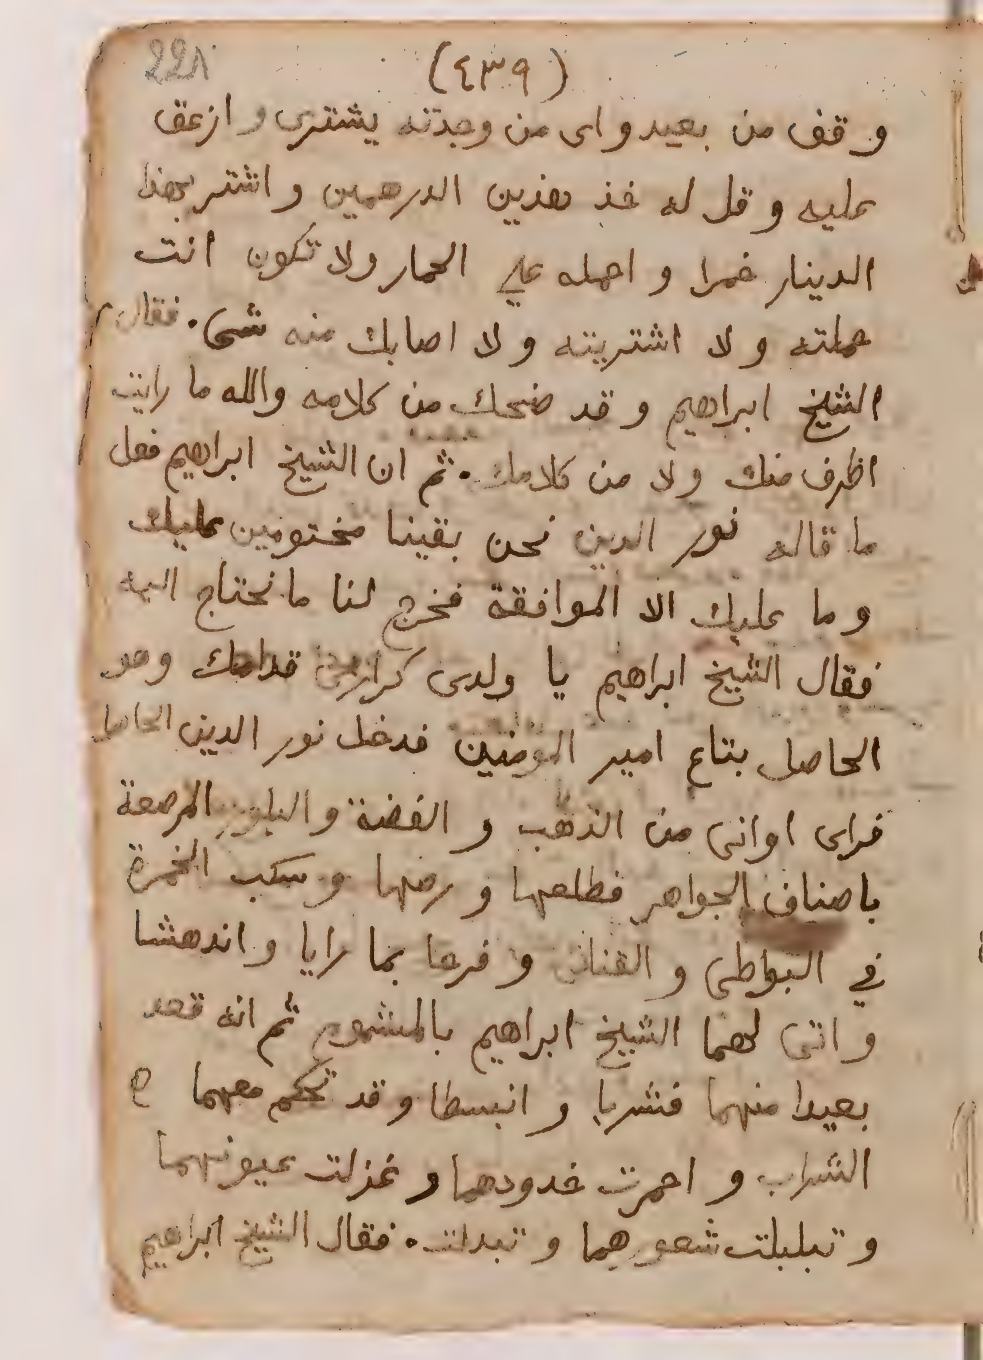 (٤٣٩)
وقف من بعيد واى من وجدته يشترى وازعق
عليه وقل له خذ هذين الدرهمين واشتر بهذا
الدينار خمرا واحمله على الحمار ولا تكون انت
حملته ولا اشتريته ولا اصابك منه شى. فقال
الشيخ ابراهيم وقد ضحك من كلامه والله ما رايت
اظرف منك ولا من كلامك. ثم ان الشيخ ابراهيم فعل
ما قاله نور الدين نحن بقينا محتومين عليك
وما عليك الا الموافقة فخرج لنا ما نحتاج اليه
فقال الشيخ ابراهيم يا ولدى قدامك وهو
الحاصل بتاع امير المومنين فدخل نور الدين الحاصل
فراى اوانى من الذهب و الفضة والبلور المرصعة
باصناف الجواهر فطلعها و رصها و سكب الخمرة
في البواطى و القنانى و فرحا بما رايا و اندهشا
و اتى لهما الشيخ ابراهيم بالمشموم ثم انه قعد
بعيدا منهما فشربا و انبسطا وقد تحكم معهما
الشراب و احمرت خدودهما و غزلت عيونهما
و تبلبلت شعورهما و تبدلت. فقال الشيخ ابراهيم